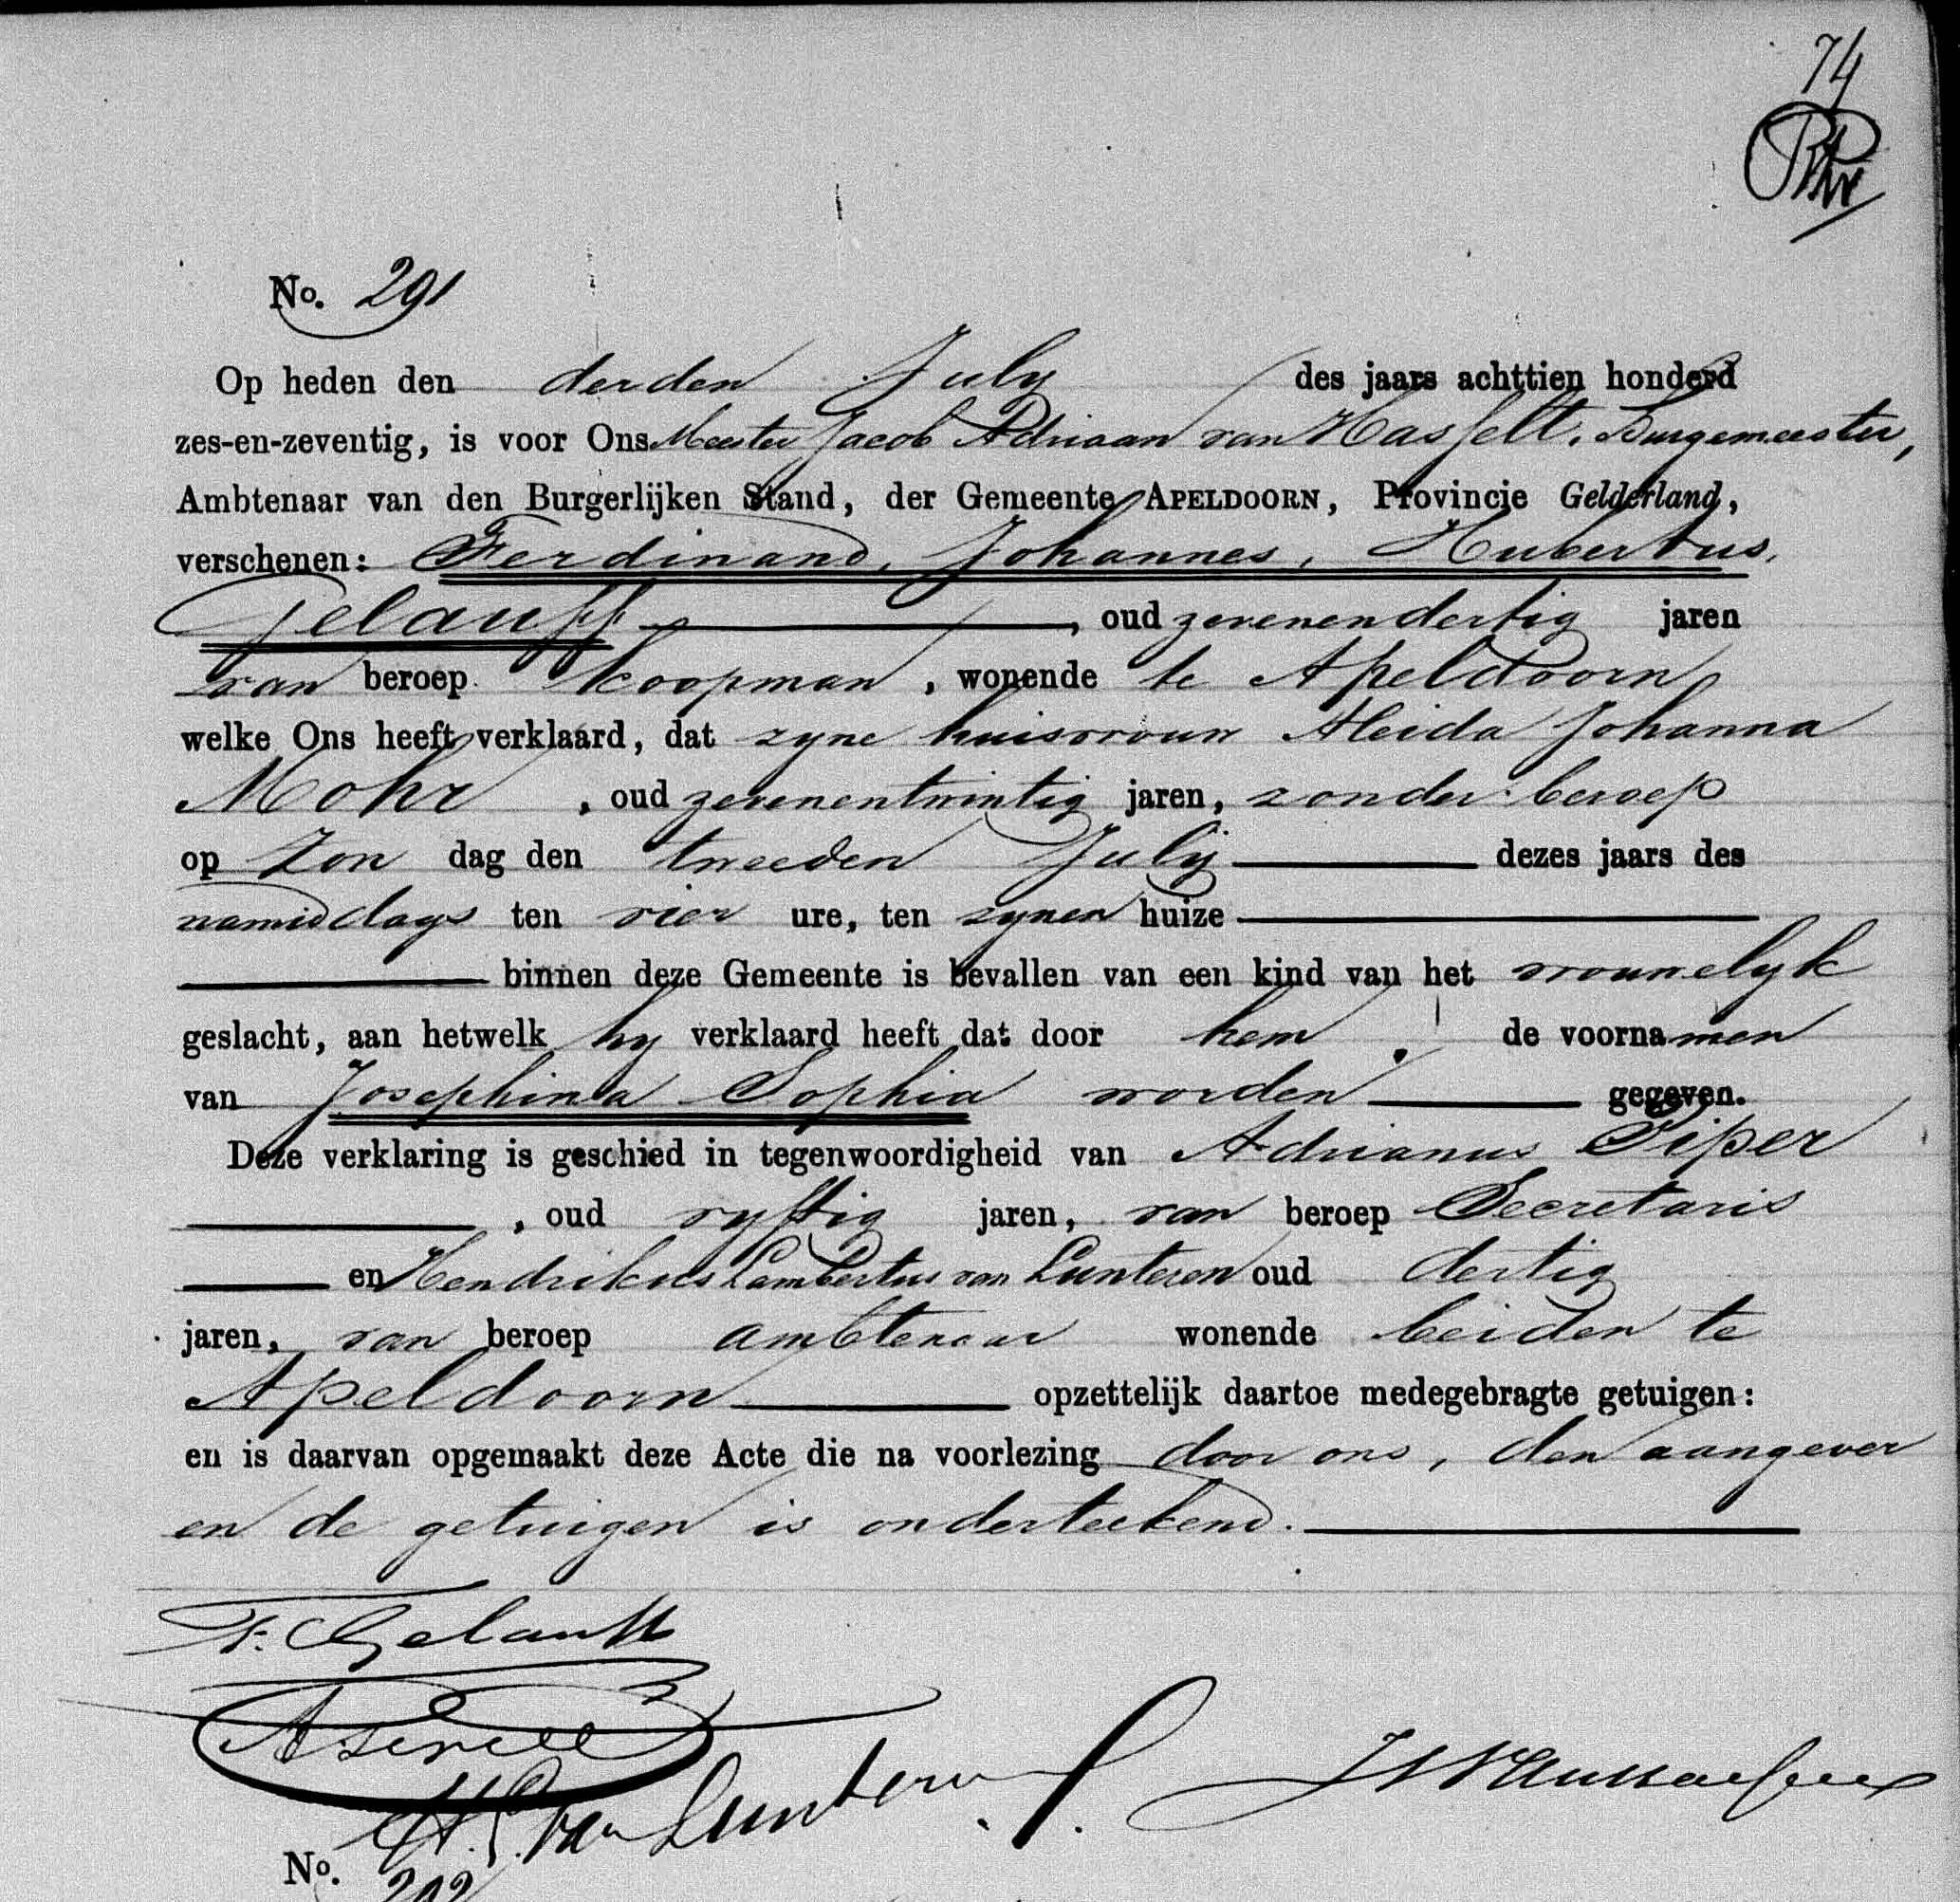 74
No. 291
Op heden den derden July des jaars achttien honderd
zes-en-zeventig, is voor Ons Meester Jacob Adriaan van Hasselt, Burgemeester,
Ambtenaar van den Burgerlijken Stand, der Gemeente APELDOORN, Provincie Gelderland,
verschenen: Ferdinand, Johannes, Hubertus,
Gelauff, oud zevenendertig jaren
van beroep koopman, wonende te Apeldoorn
welke Ons heeft verklaard, dat zyne huisvrouw Aleida Johanna
Mohr, oud zevenentwintig jaren, zonder beroep
op Zon dag den tweeden July dezes jaars des
namiddags ten vier ure, ten zynen huize
binnen deze Gemeente is bevallen van een kind van het vrouwelyk
geslacht, aan hetwelk hy verklaard heeft dat door hem de voornamen
van Josephina Sophia worden gegeven.
Deze verklaring is geschied in tegenwoordigheid van Adrianus Piper
, oud vyftig jaren, van beroep Secretaris
en Hendrikus Lambertus van Lunteren oud dertig
jaren, van beroep ambtenaar wonende beiden te
Apeldoorn opzettelijk daartoe medegebragte getuigen:
en is daarvan opgemaakt deze Acte die na voorlezing door ons, den aangever
en de getuigen is onderteekend.
F. Gelauff
H. L. van Lunteren
No. 292